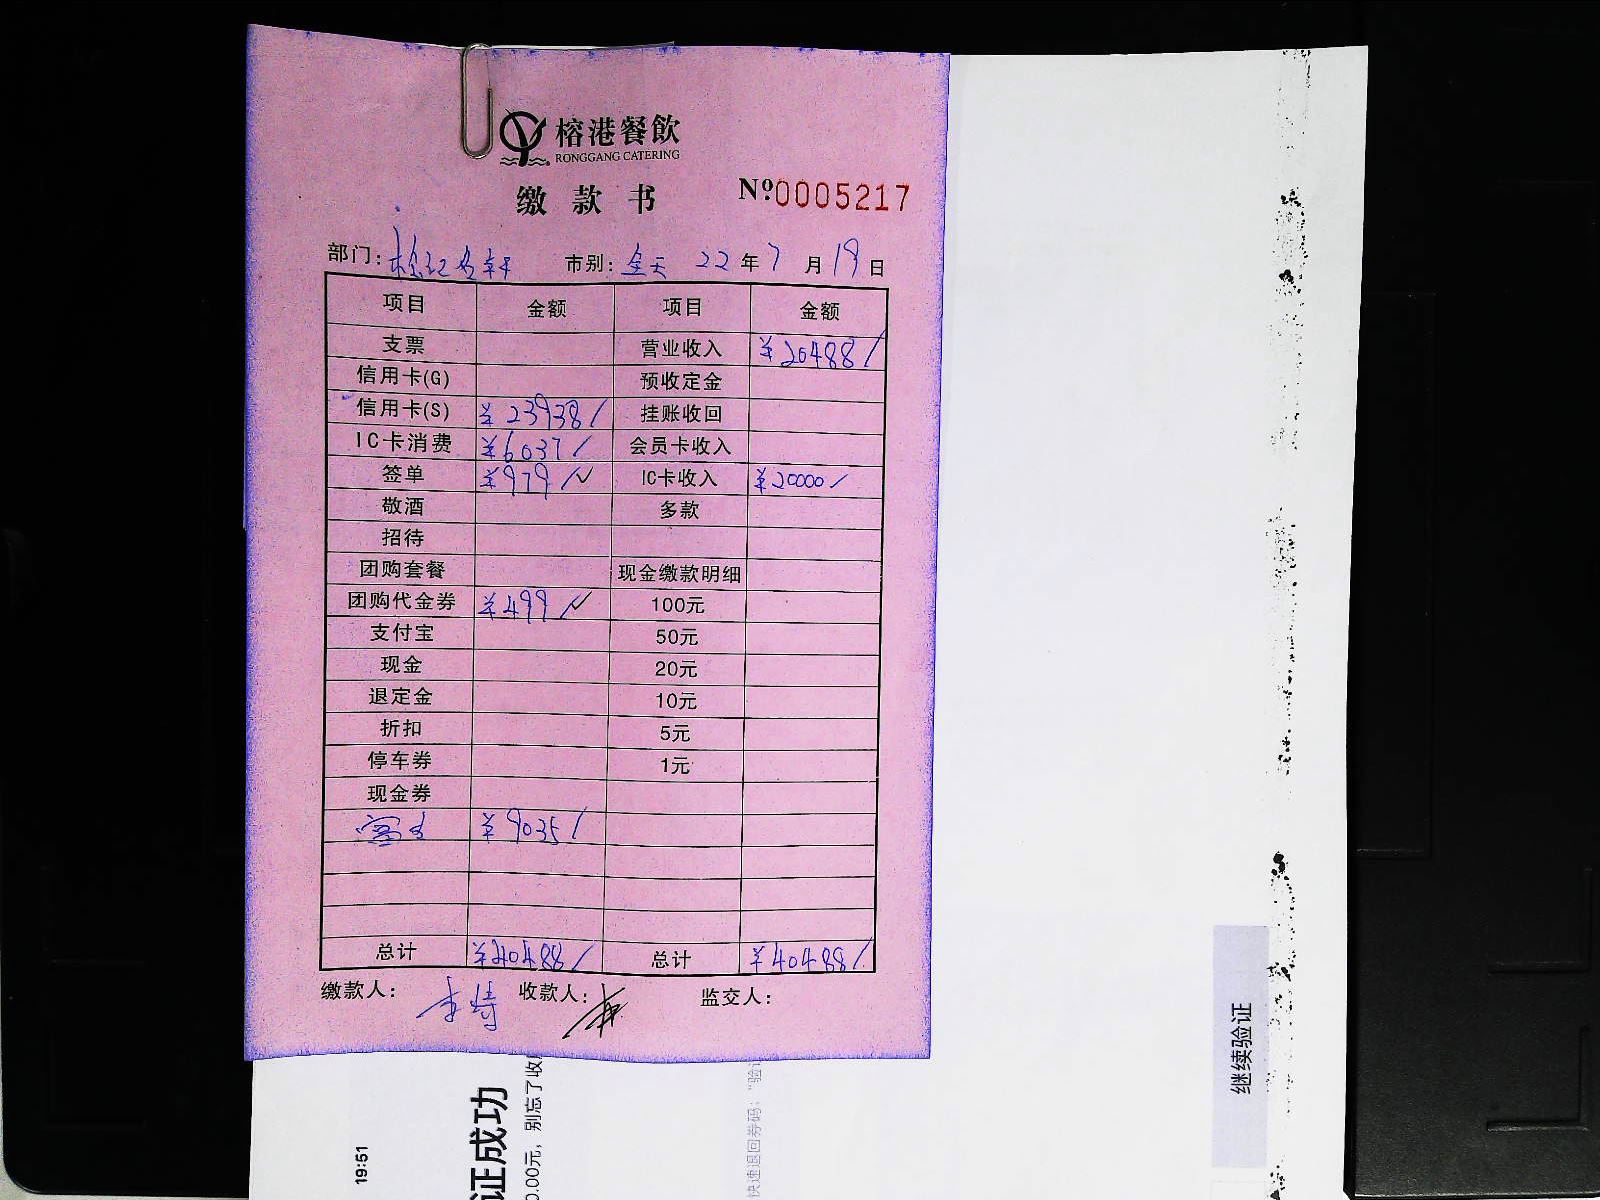 榕港餐飲
RONGGANG CATERING
缴款书 №0005217
部门: 市别: 全天 22年7月19日
项目 金额 项目 金额
支票 营业收入 ¥20488/
信用卡(G) 预收定金
信用卡(S) ¥23938/ 挂账收回
IC卡消费 ¥6037/ 会员卡收入
签单 ¥979/✓ IC卡收入 ¥20000/
敬酒 多款
招待
团购套餐 现金缴款明细
团购代金券 ¥499/✓ 100元
支付宝 50元
现金 20元
退定金 10元
折扣 5元
停车券 1元
现金券
¥9035/
总计 ¥40488/ 总计 ¥40488/
缴款人: 收款人: 监交人:
19:51
证成功
0.00元，别忘了收
快速退回券码："验证
继续验证